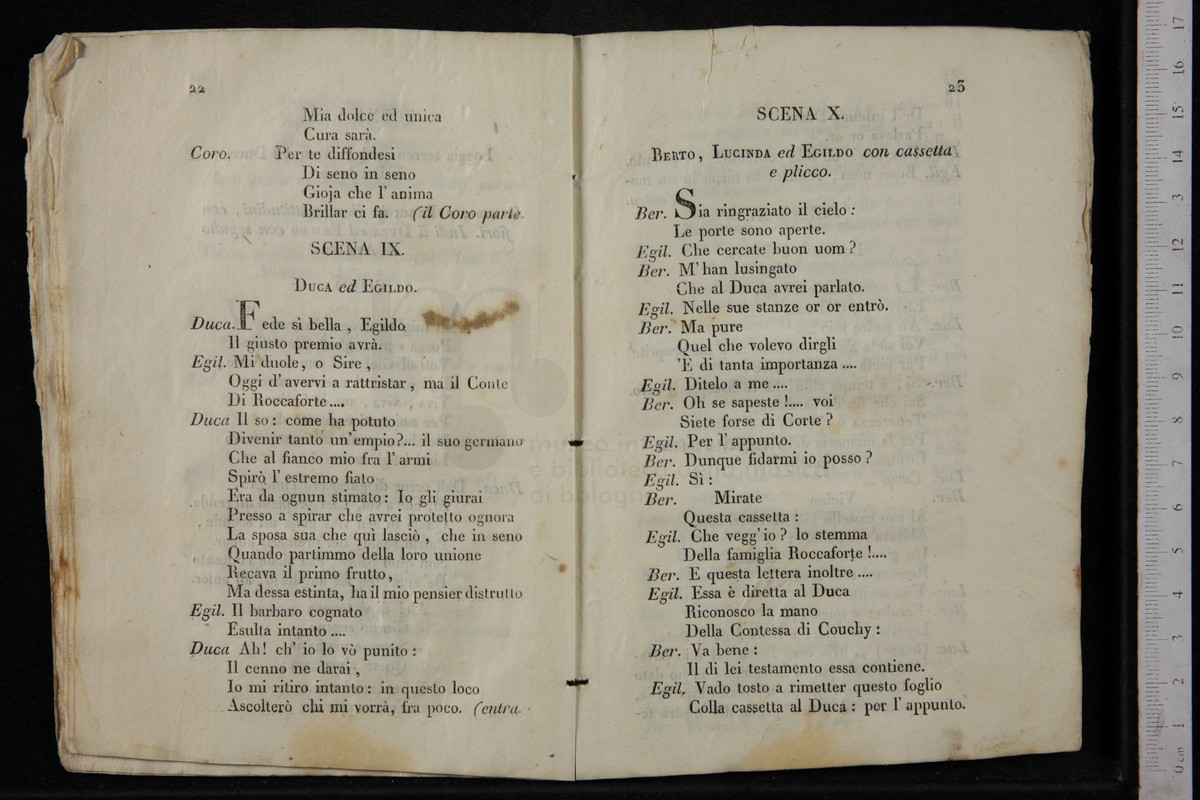 22
Mia dolce ed unica
Cura sarà.
Coro. Per te diffondesi
Di seno in seno
Gioja che l' anima
Brillar ci fa. (il Coro parte.
SCENA IX.
DUCA ed EGILDO.
Duca. Fede sì bella, Egildo
Il giusto premio avrà.
Egil. Mi duole, o Sire,
Oggi d' avervi a rattristar, ma il Conte
Di Roccaforte....
Duca Il so: come ha potuto
Divenir tanto un' empio?... il suo germano
Che al fianco mio fra l' armi
Spirò l' estremo fiato
Era da ognun stimato: Io gli giurai
Presso a spirar che avrei protetto ognora
La sposa sua che quì lasciò, che in seno
Quando partimmo della loro unione
Recava il primo frutto,
Ma dessa estinta, ha il mio pensier distrutto
Egil. Il barbaro cognato
Esulta intanto....
Duca Ah! ch' io lo vò punito:
Il cenno ne darai,
Io mi ritiro intanto: in questo loco
Ascolterò chi mi vorrà, fra poco. (entra.
23
SCENA X.
BERTO, LUCINDA ed EGILDO con cassetta
e plicco.
Ber. Sia ringraziato il cielo:
Le porte sono aperte.
Egil. Che cercate buon uom?
Ber. M' han lusingato
Che al Duca avrei parlato.
Egil. Nelle sue stanze or or entrò.
Ber. Ma pure
Quel che volevo dirgli
'E di tanta importanza....
Egil. Ditelo a me....
Ber. Oh se sapeste!.... voi
Siete forse di Corte?
Egil. Per l' appunto.
Ber. Dunque fidarmi io posso?
Egil. Sì:
Ber. Mirate
Questa cassetta:
Egil. Che vegg' io? lo stemma
Della famiglia Roccaforte!....
Ber. E questa lettera inoltre....
Egil. Essa è diretta al Duca
Riconosco la mano
Della Contessa di Couchy:
Ber. Va bene:
Il di lei testamento essa contiene.
Egil. Vado tosto a rimetter questo foglio
Colla cassetta al Duca: per l' appunto.